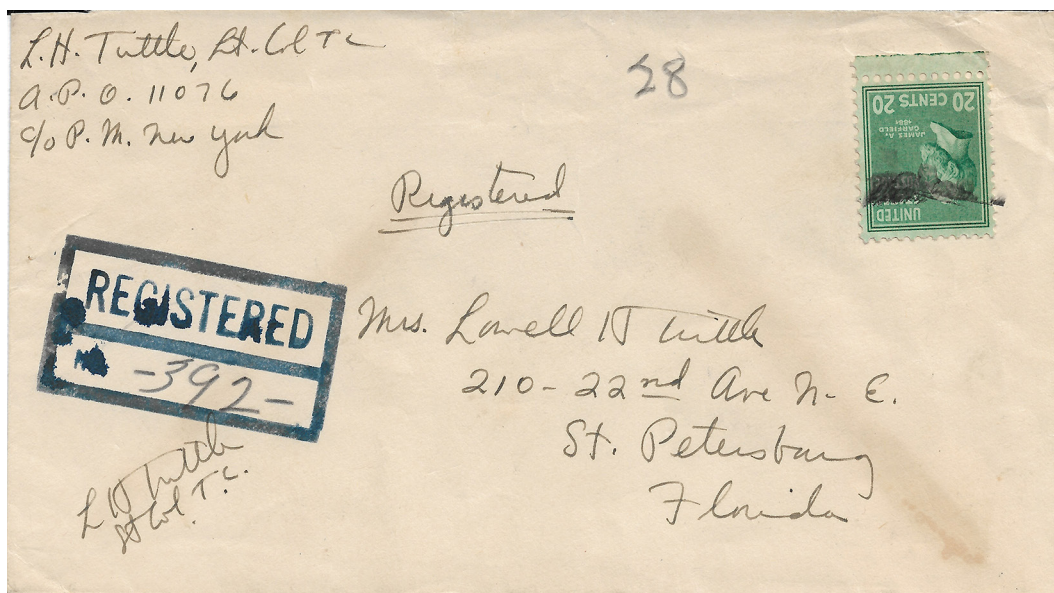 L.H. Tuttle, Lt. Col TC
A.P.O. 11076
c/o P.M. New York
28
20 CENTS 20
JAMES A. GARFIELD
1881
UNITED
Registered
REGISTERED
No -392-
Mrs. Lowell H Tuttle
210-22nd Ave N. E.
St. Petersburg
Florida
L H Tuttle
Lt Col. T.C.